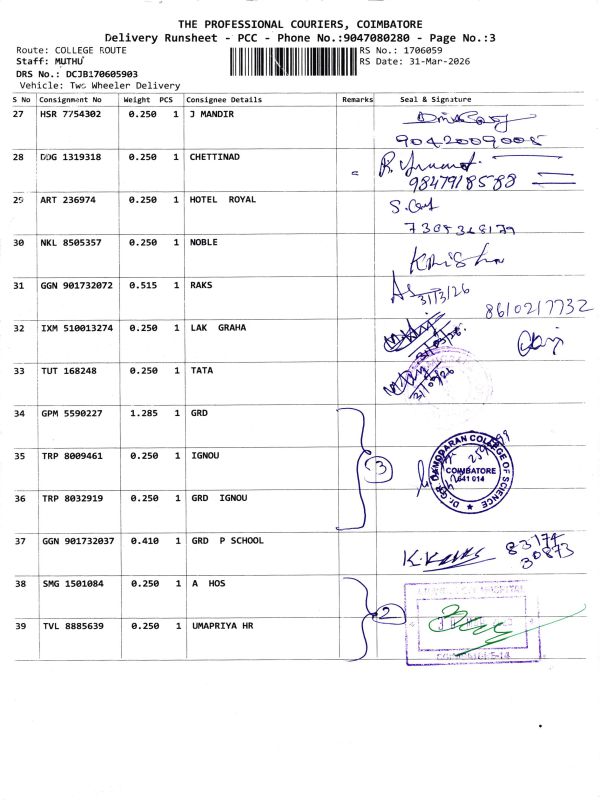 THE PROFESSIONAL COURIERS, COIMBATORE
Delivery Runsheet - PCC - Phone No.:9047080280 - Page No.:3
Route: COLLEGE ROUTE
RS No.: 1706059
Staff: MUTHU
RS Date: 31-Mar-2026
DRS No.: DCJB170605903
Vehicle: Two Wheeler Delivery
S No Consignment No Weight PCS Consignee Details Remarks Seal & Signature
27 HSR 7754302 0.250 1 J MANDIR
9042009005
28 DDG 1319318 0.250 1 CHETTINAD
9847918588
29 ART 236974 0.250 1 HOTEL ROYAL
30 NKL 8505357 0.250 1 NOBLE
Krishna
31 GGN 901732072 0.515 1 RAKS
31/3/26
8610217732
32 IXM 510013274 0.250 1 LAK GRAHA
33 TUT 168248 0.250 1 TATA
34 GPM 5590227 1.285 1 GRD
35 TRP 8009461 0.250 1 IGNOU
3
Dr. GR DAMODARAN COLLEGE OF SCIENCE
COIMBATORE
641 014
36 TRP 8032919 0.250 1 GRD IGNOU
37 GGN 901732037 0.410 1 GRD P SCHOOL
83174
30873
38 SMG 1501084 0.250 1 A HOS
2
39 TVL 8885639 0.250 1 UMAPRIYA HR